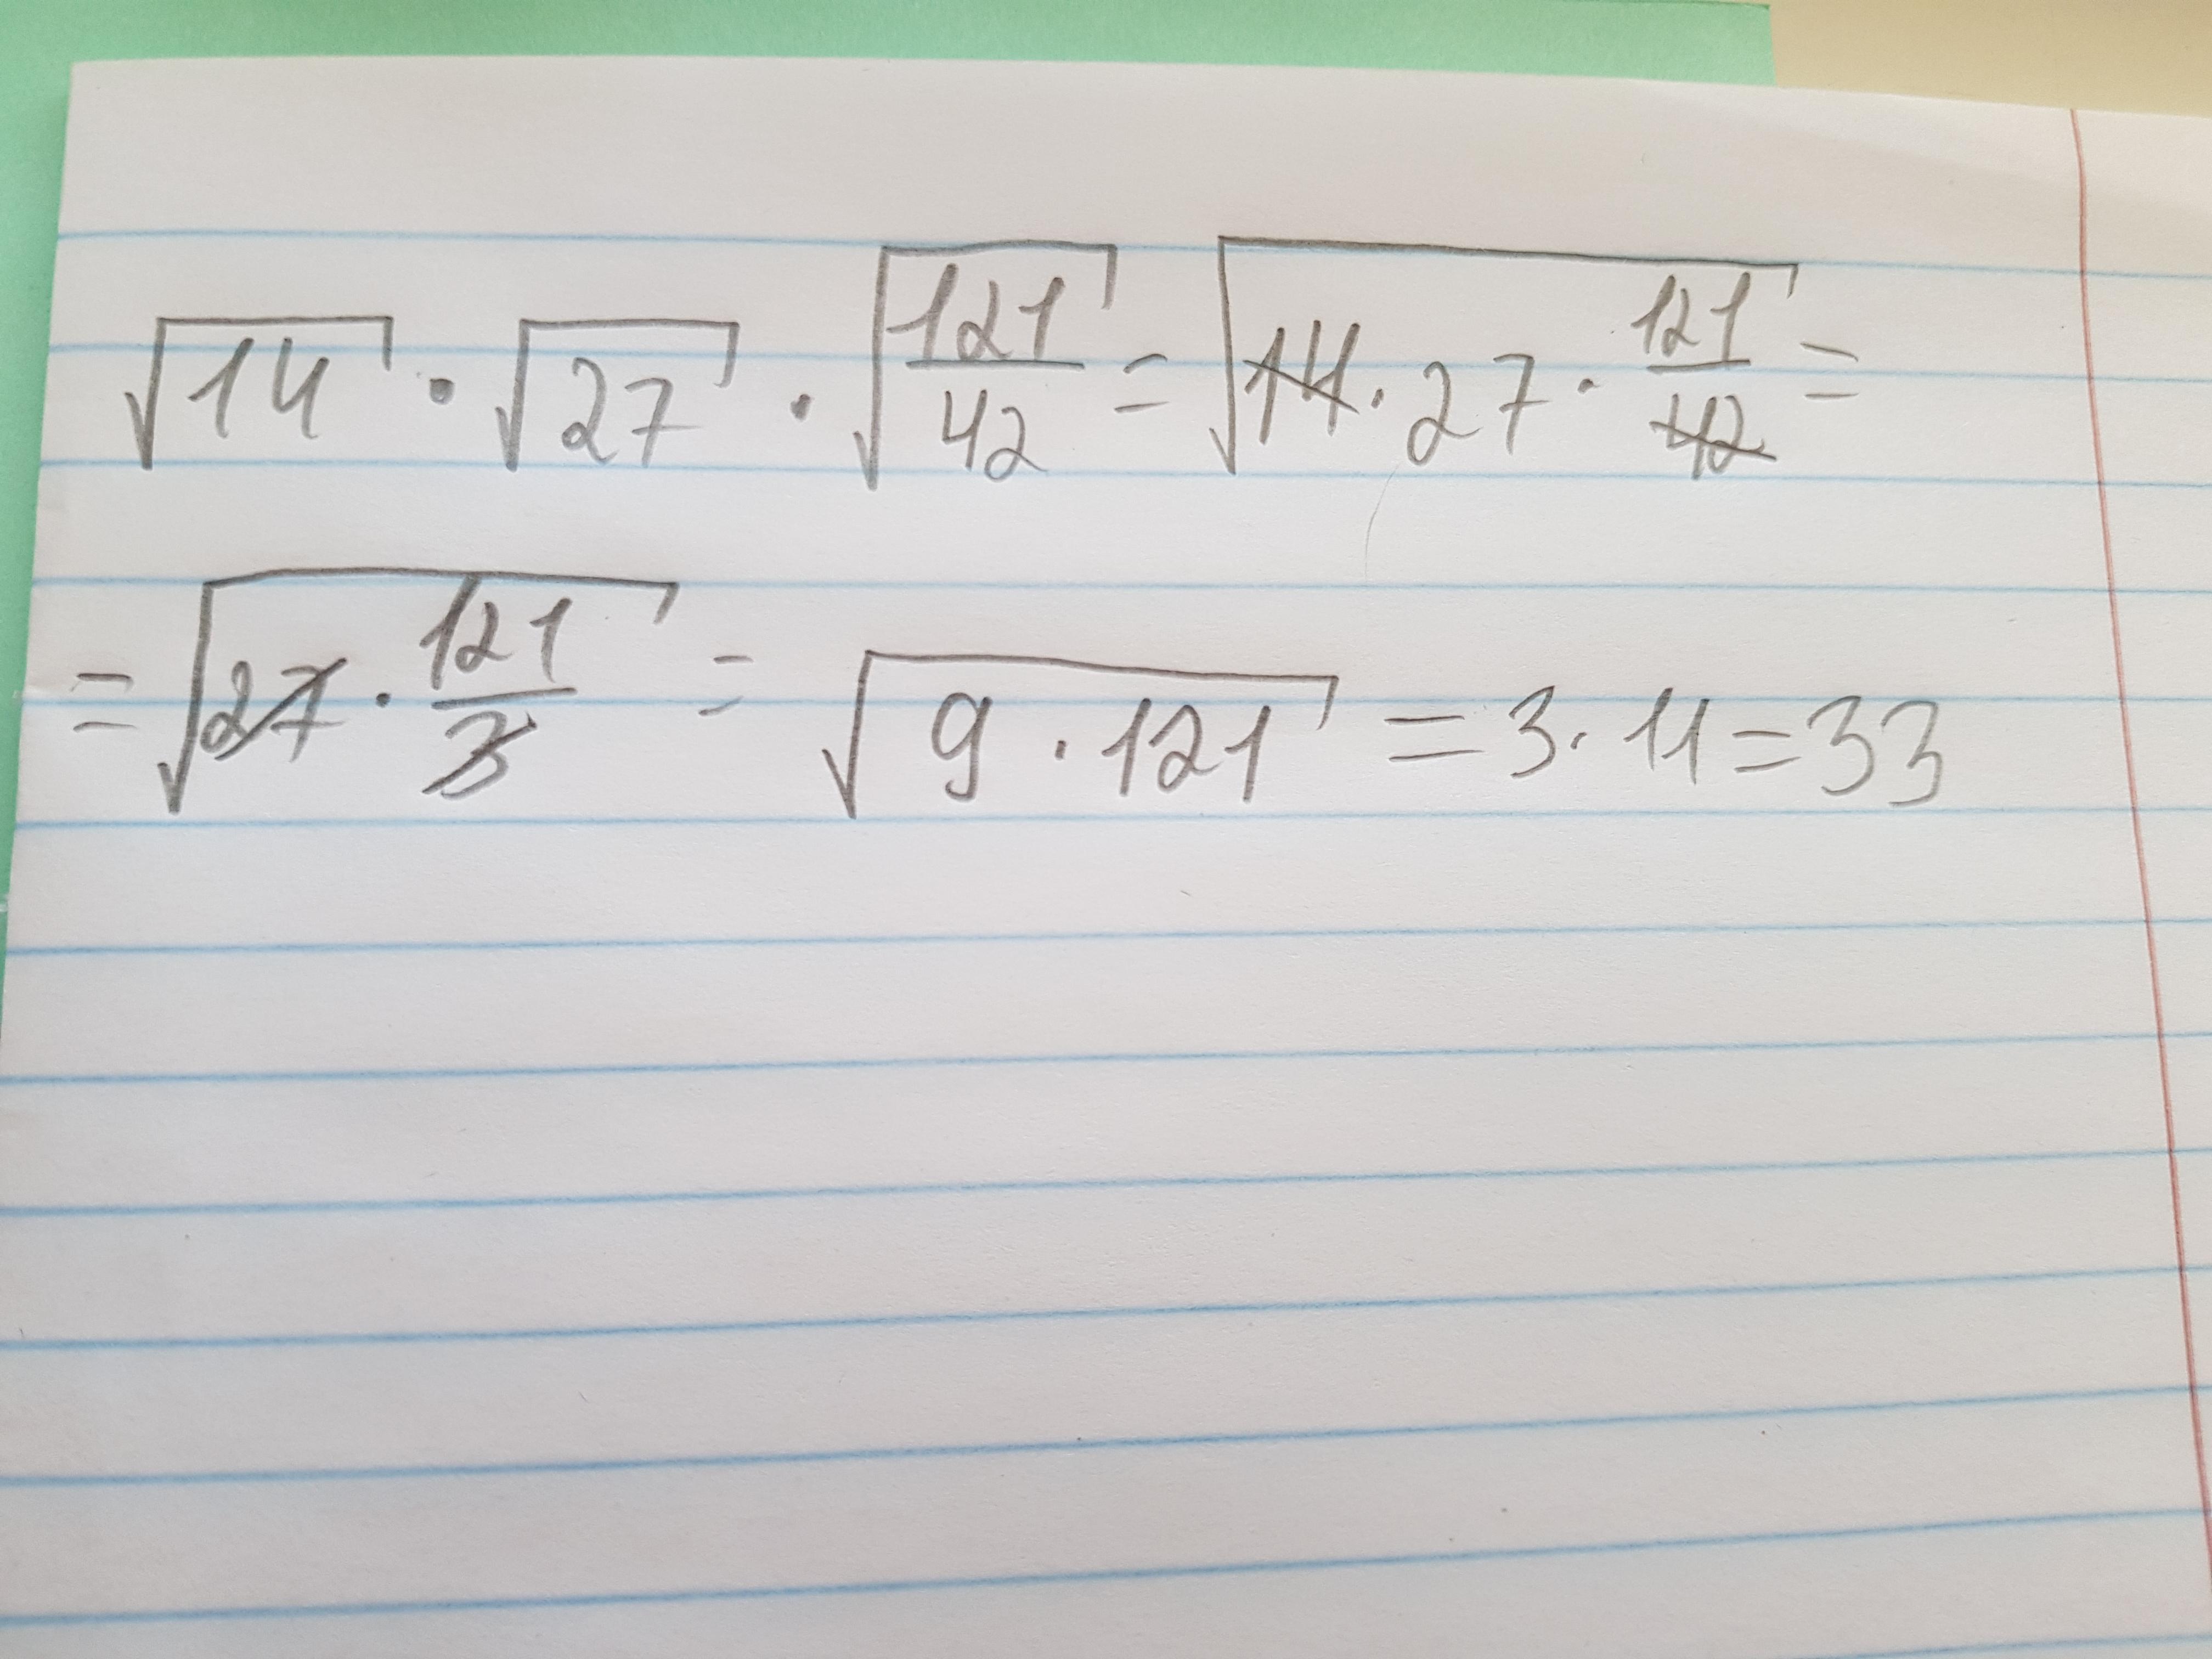 √14 · √27 · √(121/42) = √(14 · 27 · 121/42) =
= √(27 · 121/3) = √(9 · 121) = 3 · 11 = 33